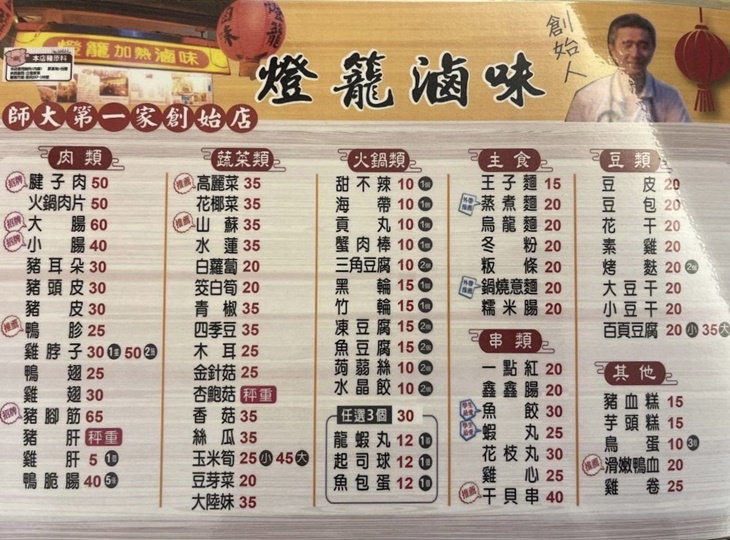 燈籠加熱滷味
本店豬原料
燈籠滷味
創始人
師大第一家創始店
肉類
招牌 腱子肉 50
火鍋肉片 50
招牌 大腸 60
招牌 小腸 40
豬耳朵 30
豬頭皮 30
豬皮 30
推薦 鴨胗 25
雞脖子 30 1個 50 2個
鴨翅 25
雞翅 30
招牌 豬腳筋 65
豬肝 秤重
雞肝 5 1個
鴨脆腸 40 5個
蔬菜類
推薦 高麗菜 35
花椰菜 35
推薦 山蘇 35
水蓮 35
白蘿蔔 20
筊白筍 20
青椒 35
四季豆 35
木耳 25
金針菇 25
杏鮑菇 秤重
香菇 35
絲瓜 35
玉米筍 25 小 45 大
豆芽菜 20
大陸妹 35
火鍋類
甜不辣 10 1個
海帶 10 1個
貢丸 10 1個
蟹肉棒 10 1個
三角豆腐 10 2個
黑輪 15 1個
竹輪 15 1個
凍豆腐 15 2個
魚豆腐 15 2個
蒟蒻絲 10 2個
水晶餃 10 2個
任選3個 30
龍蝦丸 12 1個
起司球 12 1個
魚包蛋 12 1個
主食
王子麵 15
外帶推薦 蒸煮麵 20
烏龍麵 20
冬粉 20
粄條 20
外帶推薦 鍋燒意麵 20
糯米腸 20
串類
一點紅 20
鑫鑫腸 20
魚餃 30
蝦丸 25
花枝丸 30
雞心 25
推薦 干貝串 40
豆類
豆皮 20
豆包 20
花干 20
素雞 20
烤麩 20 2個
大豆干 20
小豆干 20
百頁豆腐 20 小 35 大
其他
豬血糕 15
芋頭糕 15
鳥蛋 10 3個
推薦 滑嫩鴨血 20
雞卷 25